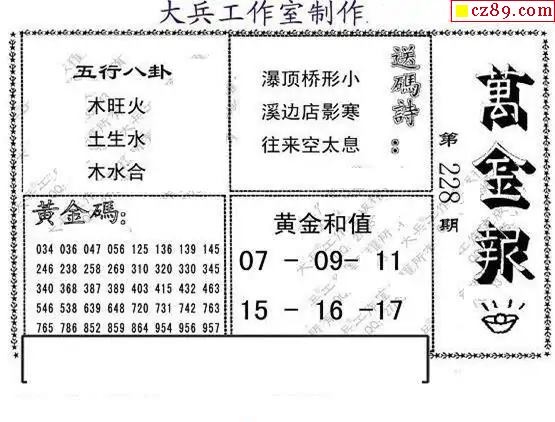 大兵工作室制作
cz89.com
五行八卦
木旺火
土生水
木水合
送碼詩：
瀑顶桥形小
溪边店影寒
往来空太息
萬金報
第228期
黃金碼：
034 036 047 056 125 136 139 145
246 238 258 269 310 320 330 345
340 368 387 389 403 415 432 463
546 538 639 648 720 731 742 763
765 786 852 859 864 954 956 957
黄金和值
07 - 09- 11
15 - 16 -17